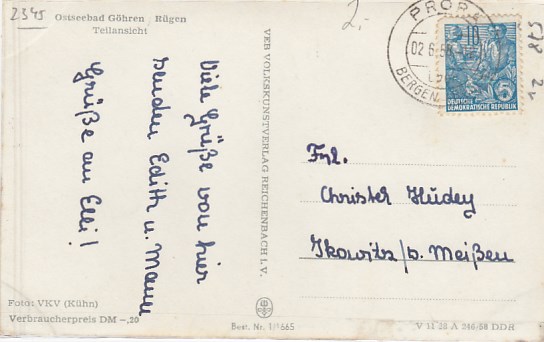 2345
Ostseebad Göhren Rügen
Teilansicht
Viele Grüße von hier
senden Edith u. Mann
Grüße an Elli!
Foto: VKV (Kühn)
Verbraucherpreis DM -,20
VEB VOLKSKUNSTVERLAG REICHENBACH I. V.
Best. Nr. 1/1665
2,-
PROR
02.6.5
BERGEN
10
5
DEUTSCHE
DEMOKRATISCHE REPUBLIK
578
Frl.
Christer Hudey
/b. Meißen
V 11 28 A 246/58 DDR